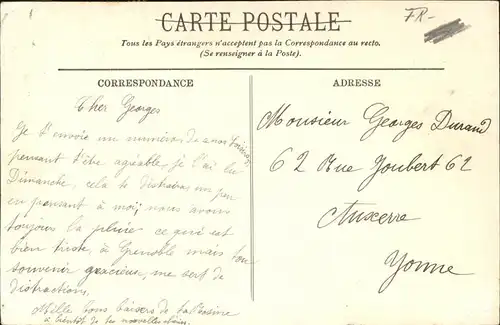 FR-
CARTE POSTALE
Tous les Pays étrangers n'acceptent pas la Correspondance au recto.
(Se renseigner à la Poste).
CORRESPONDANCE
Cher Georges
Je t'envoie un numéros de
pensant t'être agréable, je l'ai lu
Dimanche, cela te distraira un peu
en pensant à moi, nous avons
toujours la pluie ce qui est
bien triste, à Grenoble mais ton
souvenir gracieux, me sert de
distractions.
Mille bons baisers de ta
à bientôt de tes nouvelles
ADRESSE
Monsieur Georges Durand
62 Rue Joubert 62
Auxerre
Yonne